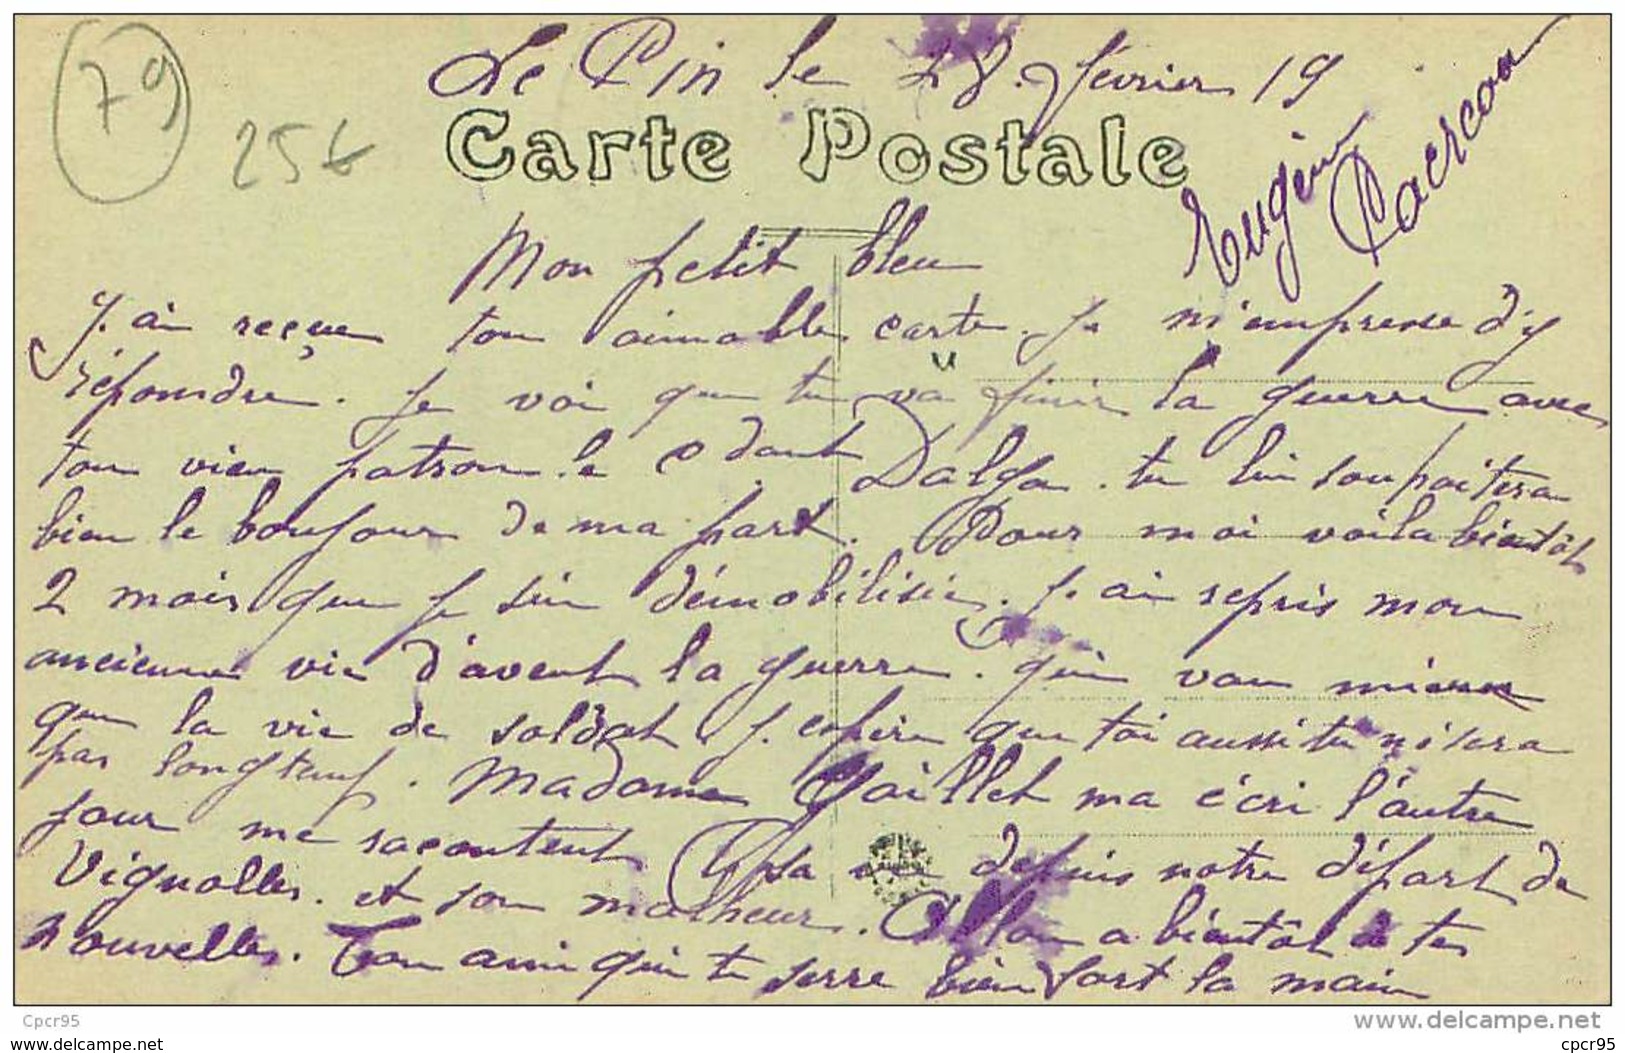 79
25€
Le Pin le 28 février 19
Carte Postale
Eugène
Mon petit bleu
J'ai reçue ton aimable carte. Je m'empresse d'y
répondre. Je voi que tu va finir la guerre avec
ton vieu patron le Ct Dalga. tu lui souhaitera
bien le bonjour de ma part. Pour moi voila bientôt
2 mois que je sui démobilisé. J'ai repris mon
ancienne vie d'avent la guerre. qui vau mieux
que la vie de soldat. J'espère que toi aussi tu né sera
pas longtemp. Madame Gaillet ma écri l'autre
jour me racontent sa vie depuis notre départ de
Vignolles. et son malheur. Allon a bientôt de tes
nouvelles. Ton ami qui te serre bien fort la main
Cpcr95
www.delcampe.net
cpcr95